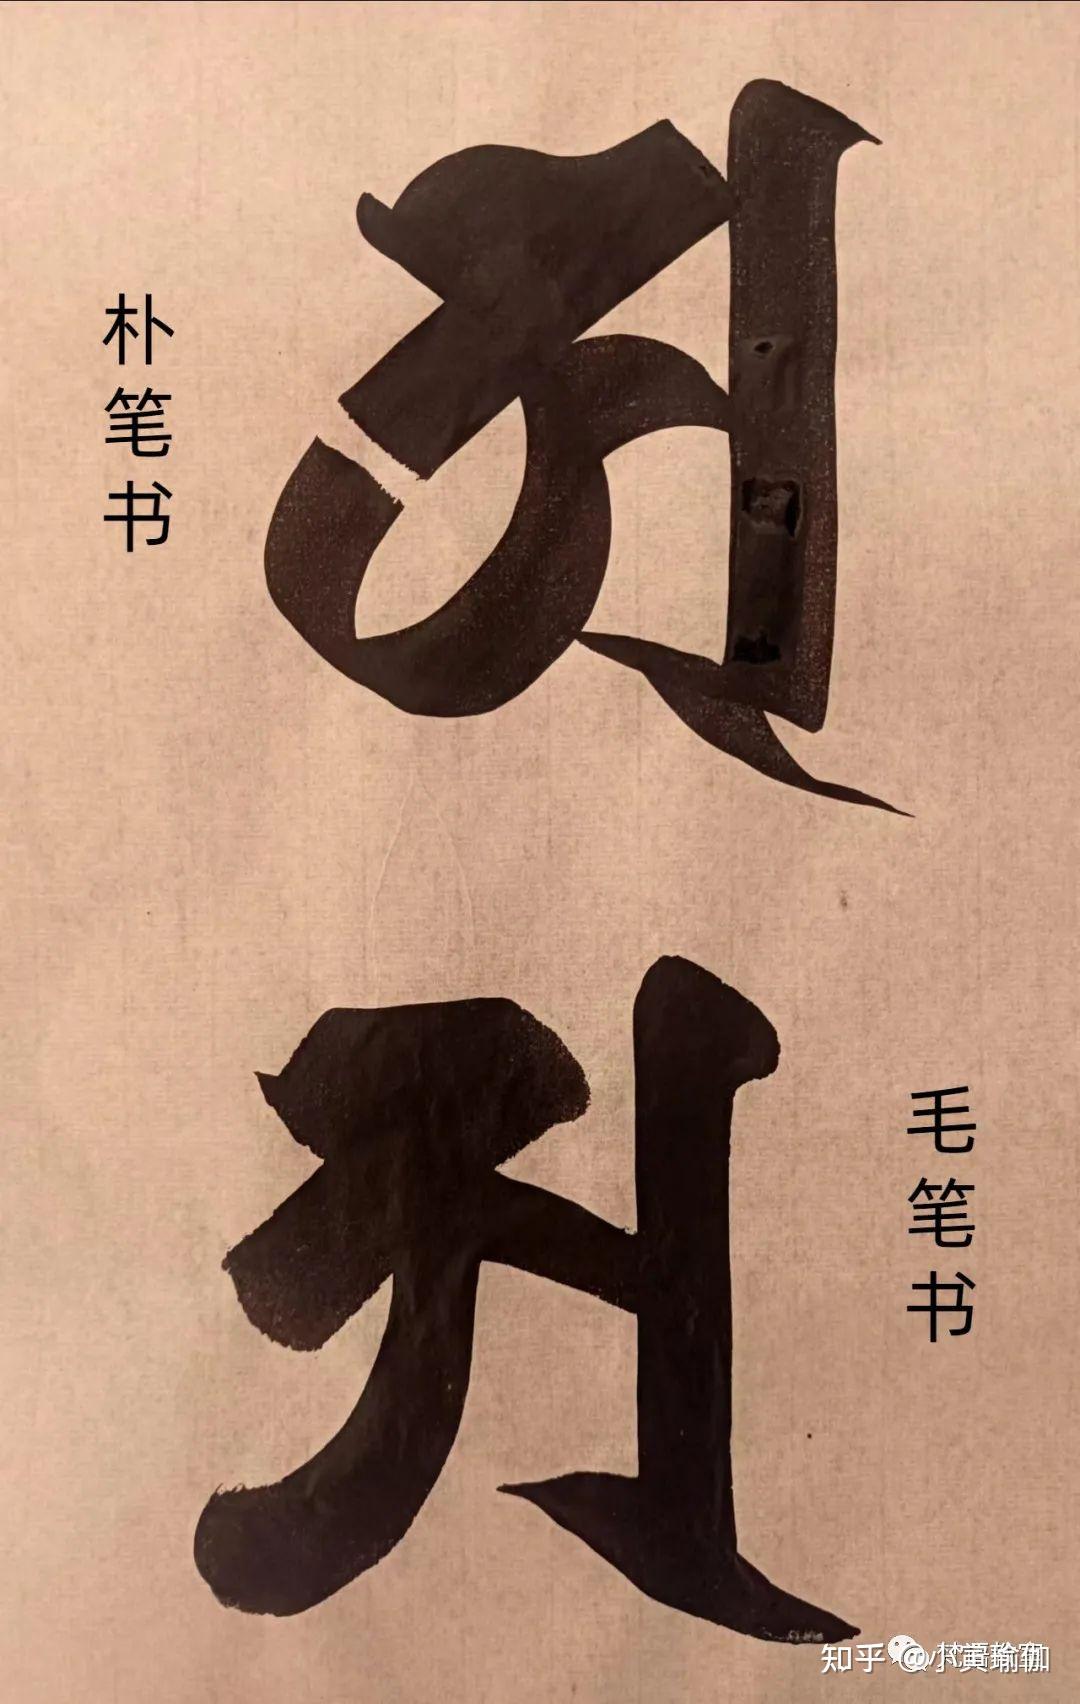 朴笔书
𑖀
𑖀
毛笔书
知乎 @小黄瑜伽